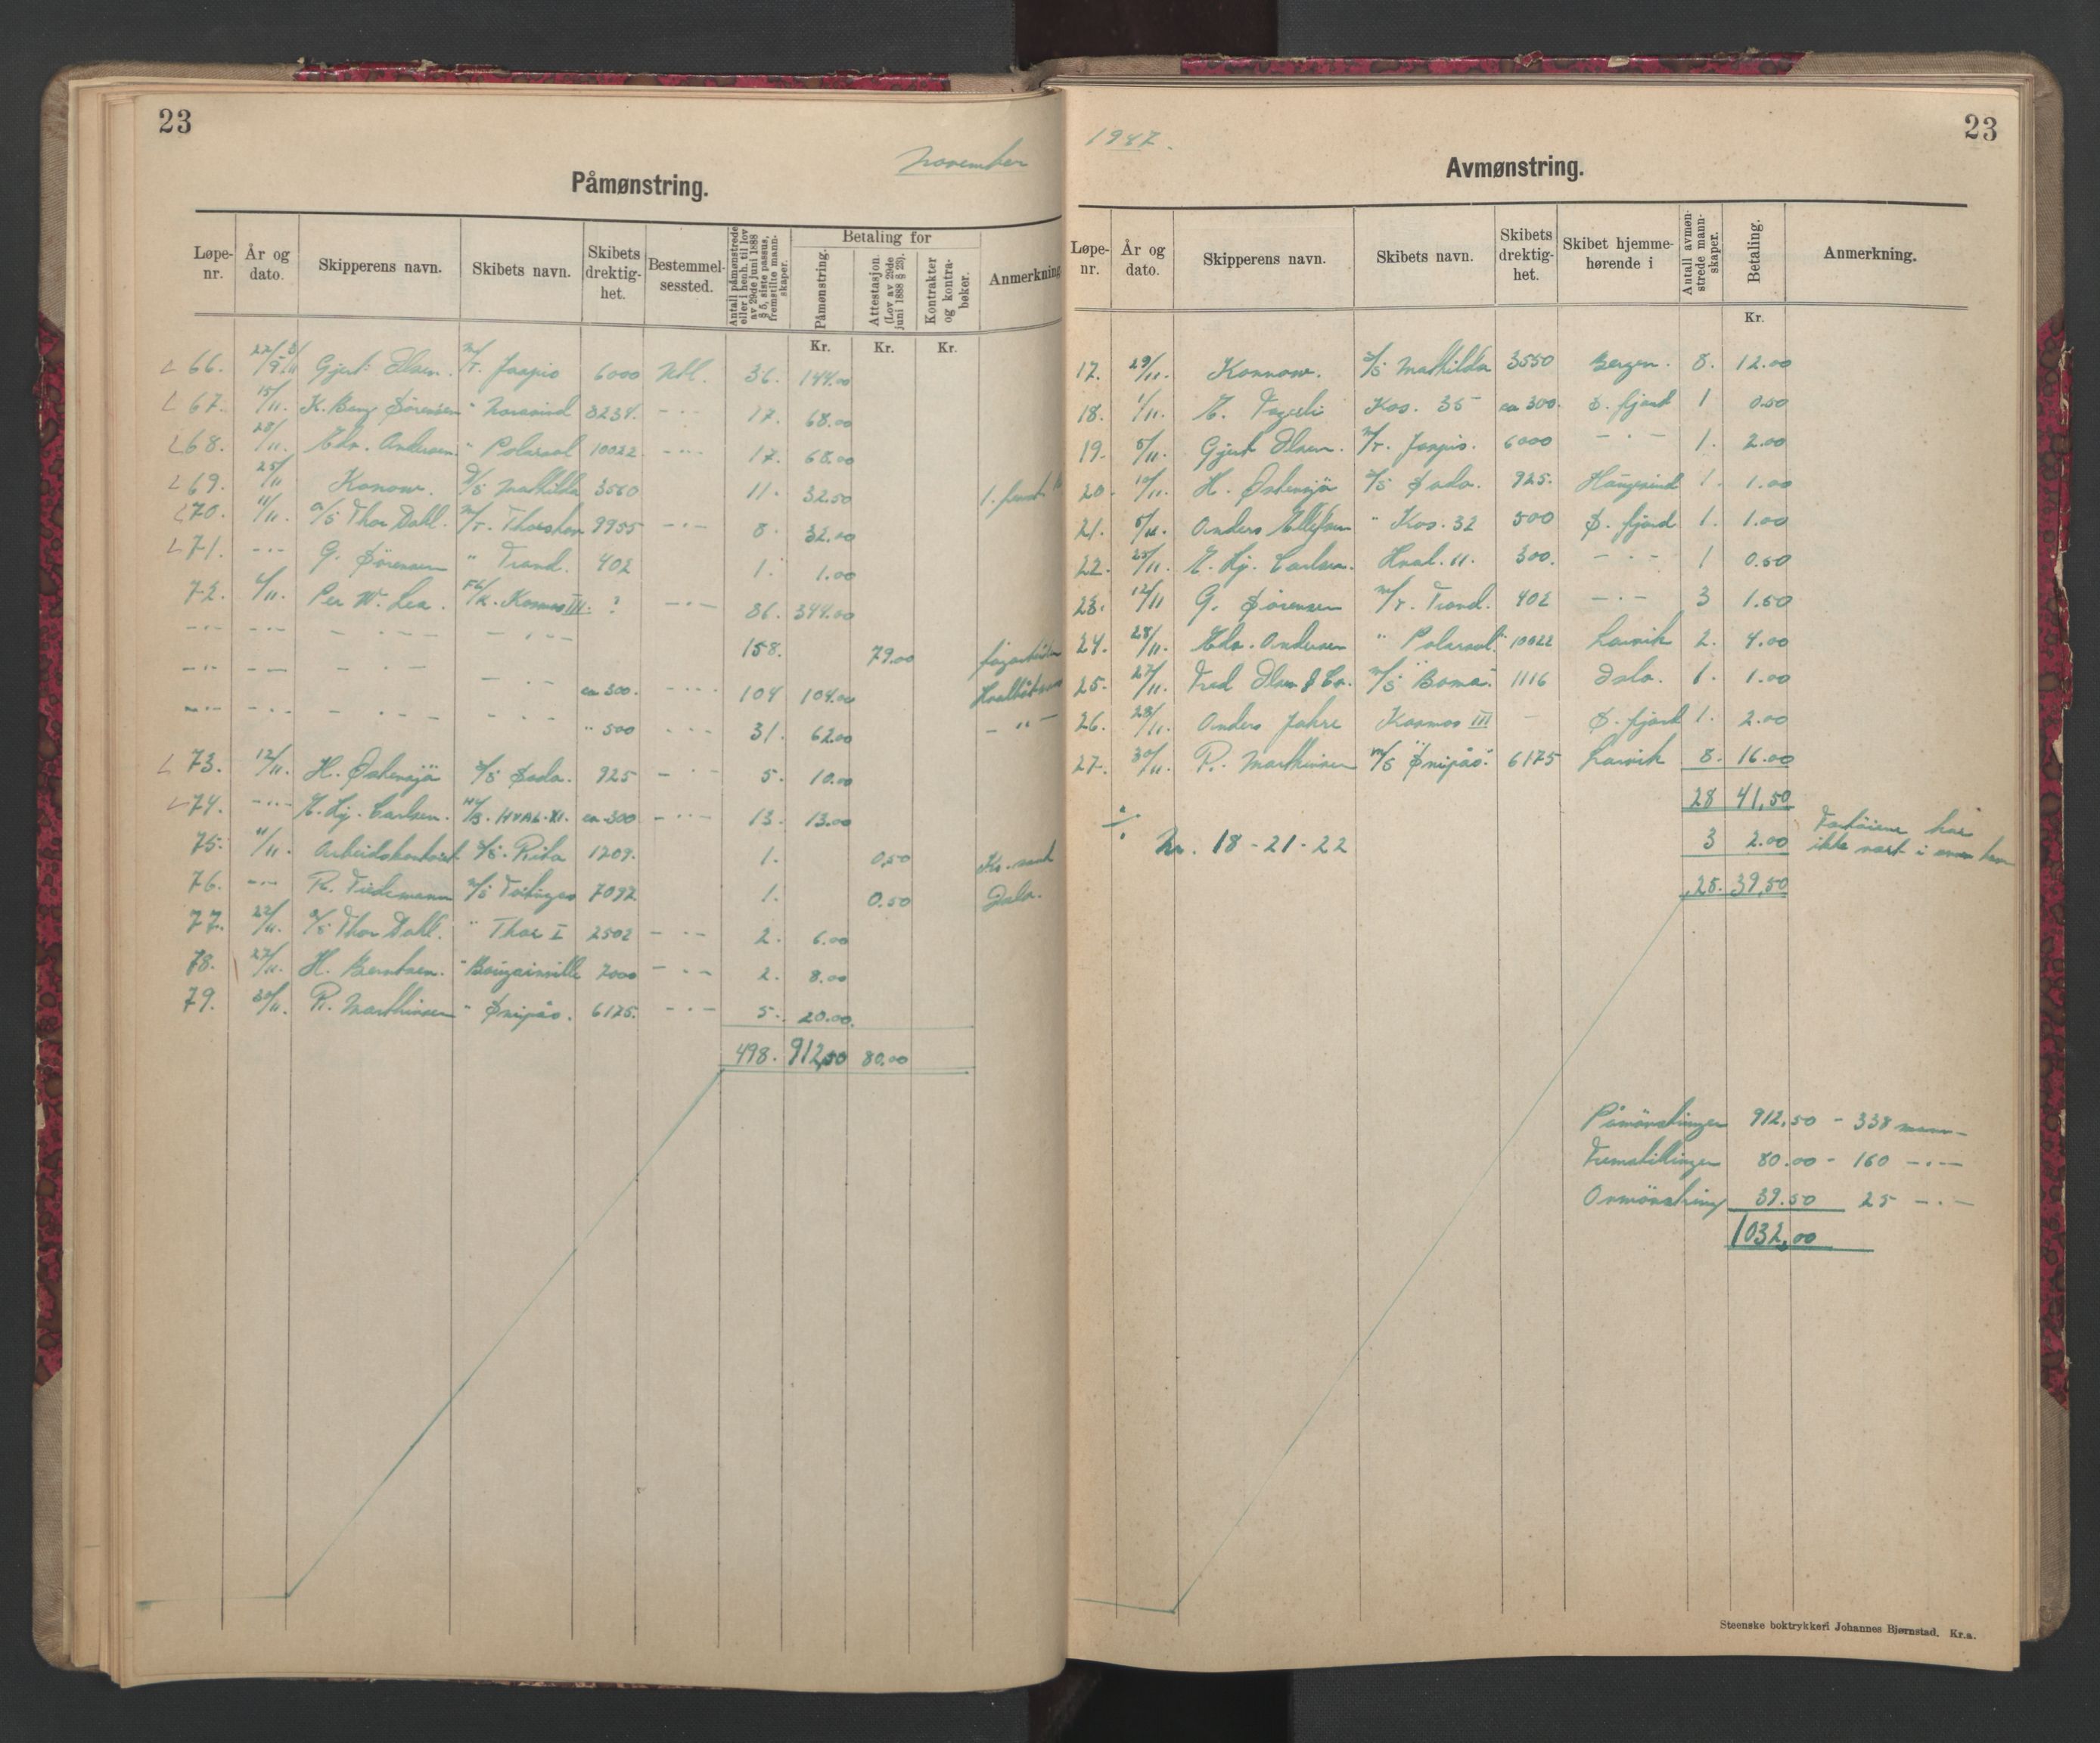 23
November
Påmønstring.
Løpe-nr. År og dato. Skipperens navn. Skibets navn. Skibets drektighet. Bestemmelsessted. Antall påmønstrede eller i henh. til lov av 29de juni 1888 § 5, siste passus, fremstilte mannskaper. Betaling for Påmønstring. Attestasjon (Lov av 29de juni 1888 § 23). Kontrakter og kontrabøker. Anmerkning
Kr. Kr. Kr.
66. Gjert Olsen. M/T. Jaspis 6000 Utl. 36. 144.00
67. 15/11. K. Berg Sørensen " Norvind 8234. - " - 17. 68.00
68. 28/11. Edv. Andersen " Polarsol 10022 - " - 17. 68.00
69. 25/11 Konow. D/S Mathilda 3550 11. 32.50
70. 11/11. A/S Thor Dahl. M/T. Thorshov 9955 - " - 8. 32.00
71. - " - G. Sørensen " Trand. 402 1. 1.00
72. Per W. Lea. Fl/K. Kosmos III. ? - " - 86. 344.00
- " - - " - - " - - - " - 158. 79.00
- " - - " - - " - - - " - ca 300. - " - 104 104.00
- " - - " - - " - - - " - " 500 - " - 31. 62.00 - " -
73. 12/11. H. Østensjø S/S Soda. 925 - " - 5. 10.00
74. - " - E. Hj. Carlsen. Hv/B. HVAL. XI. ca 300 - " - 13. 13.00
75. 11/11. Arbeidskontoret S/S. Rita 1209. 1. 0,50 Kr. sand
76. - " - R. Tidemann M/S Toledo 7092 1. 0.50 Oslo.
77. 22/11. A/S Thor Dahl. " Thor I 2502 - " - 2. 6.00
78. 27/11. H. Berntsen. " Bougainville 7000 - " - 2. 8.00
79. 30/11. R. Marthinsen " Snipås. 6175. - " - 5. 20.00.
498. 912,50 80.00
1947.
23
Avmønstring.
Løpe-nr. År og dato. Skipperens navn. Skibets navn. Skibets drektighet. Skibet hjemmehørende i Antall avmønstrede mannskaper. Betaling. Anmerkning.
Kr.
17. 29/11. Konnow. S/S Mathilda 3550 Bergen. 8. 12.00
18. 1/11. Kos. 35 ca 300. S. fjord 1 0.50
19. 5/11. Gjert Olsen. M/T. Jaspis. 6000 - " - 1. 2.00
20. 10/11. H. Østensjø S/S Soda. 925. Haugesund 1. 1.00
21. 5/11. Anders Ellefsen " Kos. 32 500 S. fjord 1. 1.00
22. 25/11. E. Hj. Carlsen. Hval. 11. 300. - " - 1 0.50
23. 12/11 G. Sørensen M/T. Trand. 402 - " - 3 1.50
24. 28/11. Edv. Andersen " Polarsol" 10022 Larvik 2. 4.00
25. 27/11. Fred Olsen & Co. M/S Bomà. 1116 Oslo. 1. 1.00
26. 28/11. Anders Jahre Kosmos III - S. fjord 1. 2.00
27. 30/11. R. Marthinsen M/S "Snipås". 6175 Larvik 8. 16.00
28 41,50
÷ Nr. 18 - 21 - 22 3 2.00 Fartøiene har
ikke vært i
25. 39,50
Påmönstringer 912,50 - 338 mann -
Fremstillinger 80.00 - 160 - " -
Avmönstring 39.50 25 - " -
1032,00
Steenske boktrykkeri Johannes Bjørnstad. Kr.a.